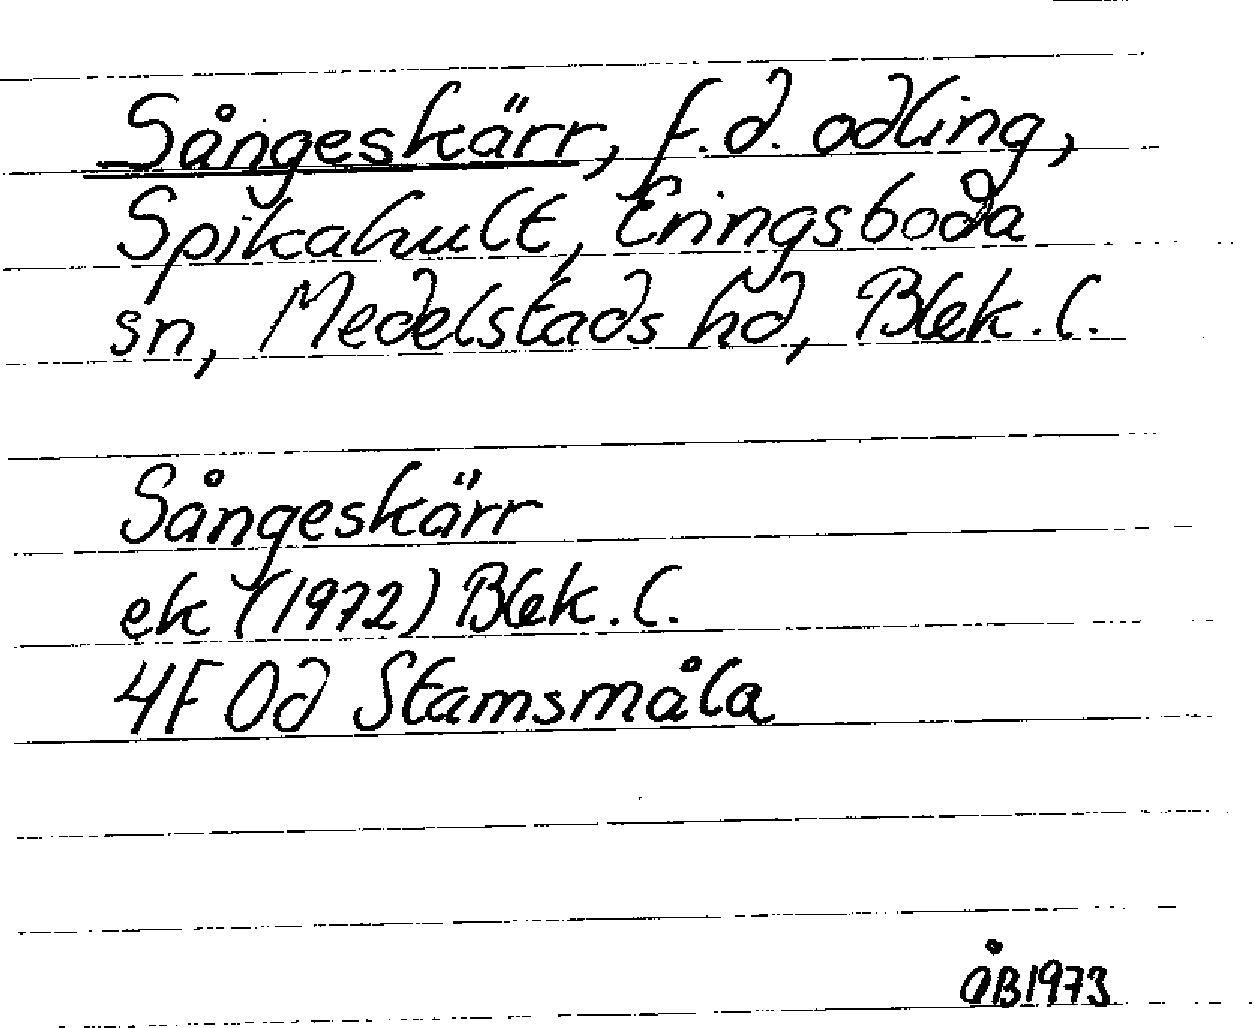 Sångeskärr, f.d. odling,
Spikahult, Eringsboda
sn, Medelstads hd, Blek. l.
Sångeskärr
ek (1972) Blek. l.
4F 0d Stamsmåla
åB1973